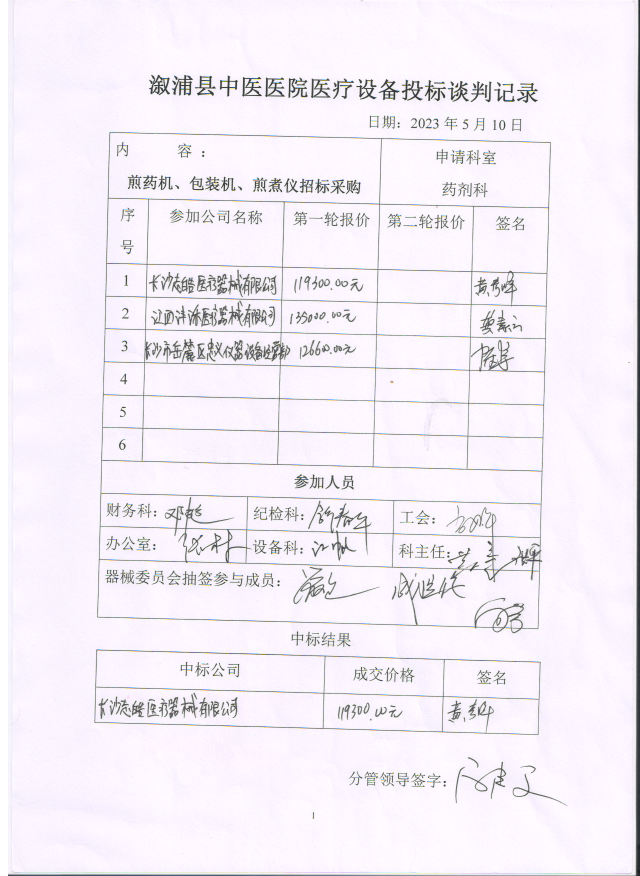 溆浦县中医医院医疗设备投标谈判记录
日期：2023 年 5 月 10 日
内 容 ： 申请科室
煎药机、包装机、煎煮仪招标采购 药剂科
序号 参加公司名称 第一轮报价 第二轮报价 签名
1 长沙志皓医疗器械有限公司 119300.00元
2 医疗器械有限公司 135000.00元
3 长沙市岳麓区忠义仪器设备经营部 126600.00元
4
5
6
参加人员
财务科： 纪检科： 工会：
办公室： 设备科： 科主任：
器械委员会抽签参与成员：
中标结果
中标公司 成交价格 签名
长沙志皓医疗器械有限公司 119300.00元
分管领导签字：
1